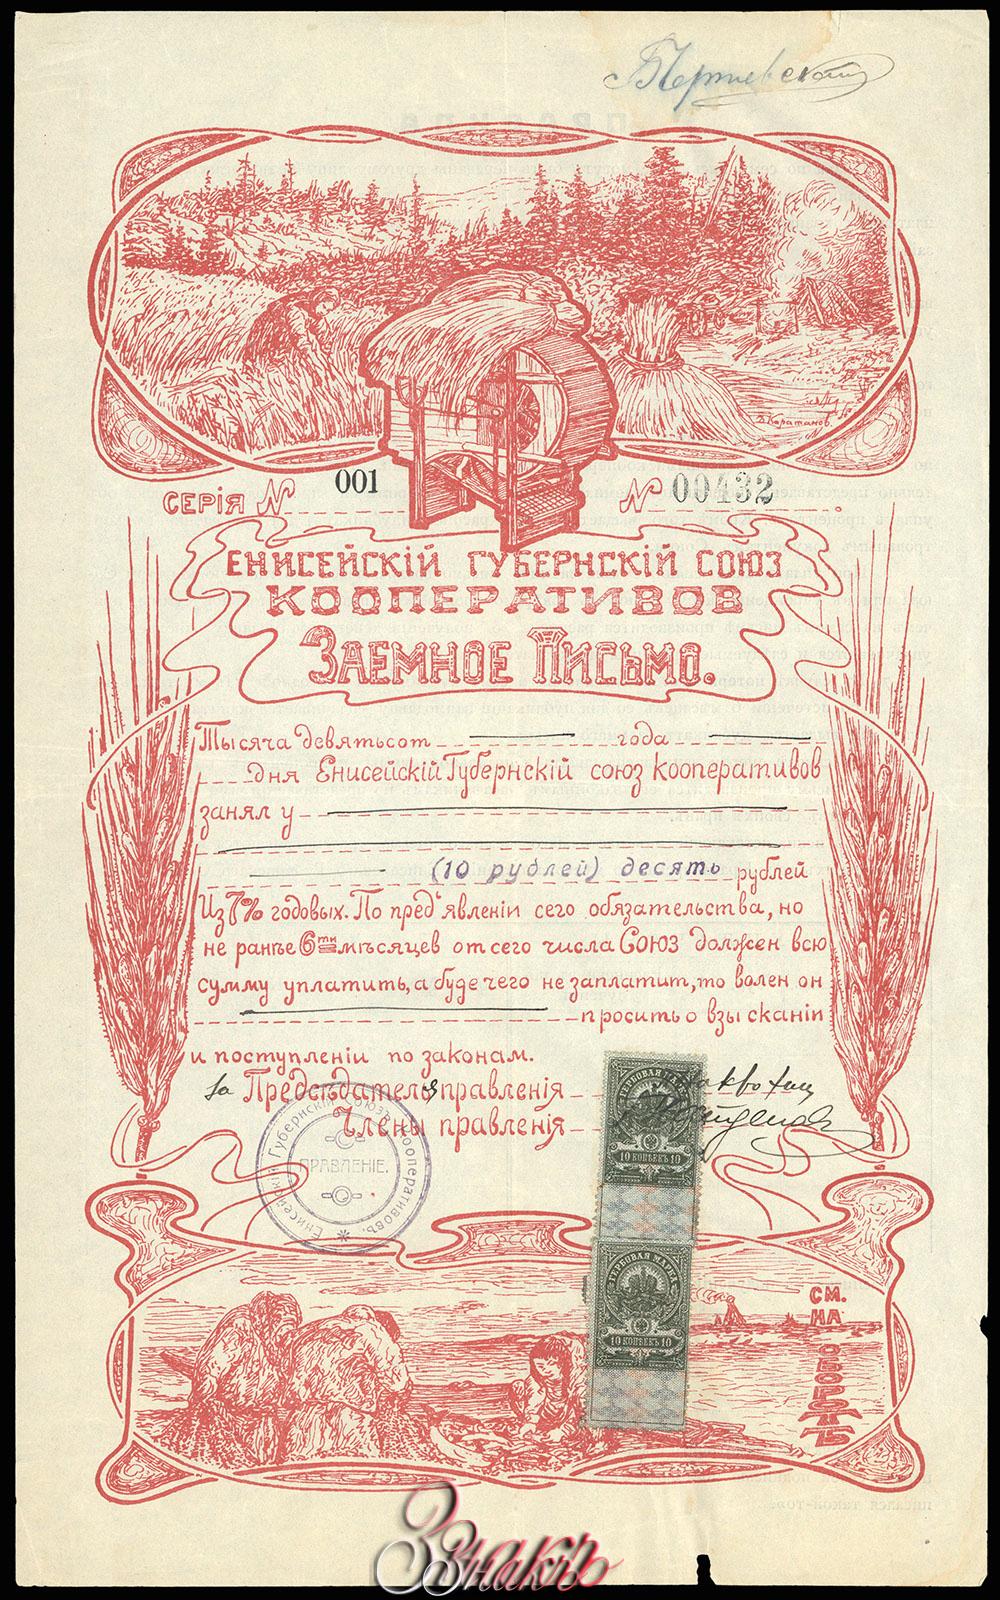 Д. Каратанов.
СЕРІЯ № 001 № 00432
ЕНИСЕЙСКІЙ ГУБЕРНСКІЙ СОЮЗ
КООПЕРАТИВОВ
ЗАЕМНОЕ ПИСЬМО.
Тысяча девятьсот года
дня Енисейскій Губернскій союз кооперативов
занял у
(10 рублей) десять рублей
Из 7% годовых. По пред'явленіи сего обязательства, но
не ранѣе 6ти мѣсяцев от сего числа Союз должен всю
сумму уплатить, а буде чего не заплатит, то волен он
просить о взысканіи
и поступленіи по законам.
за Предсѣдателя правленія
Члены правленія
Енисейскій Губернскій Союзъ Кооперативовъ.
ПРАВЛЕНІЕ.
ГЕРБОВАЯ МАРКА
10 КОПѢЕКЪ 10
ГЕРБОВАЯ МАРКА
10 КОПѢЕКЪ 10
СМ.
НА
ОБОРОТѢ
Знакъ